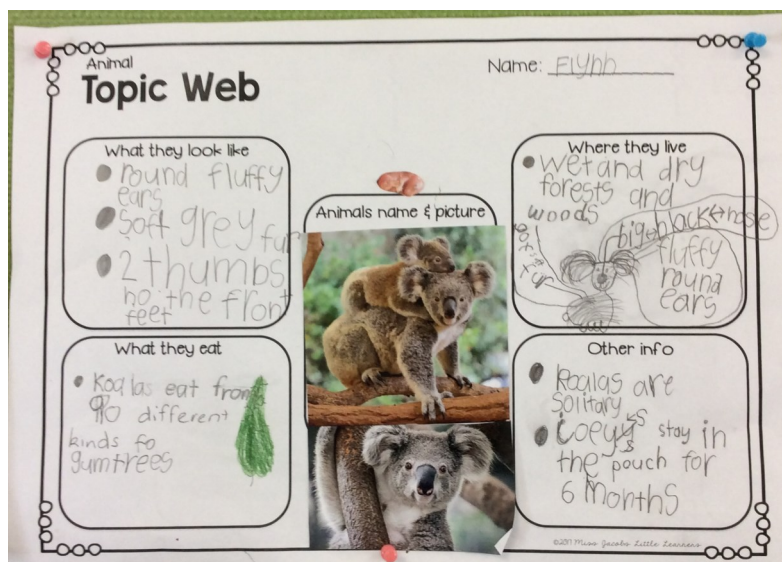 Animal
Topic Web
Name: Flynn
What they look like
round fluffy
ears
soft grey fur
2 thumbs
no the front
feet
Animals name & picture
Where they live
wet and dry
forests and
woods
big black nose
fluffy
round
ears
What they eat
Koalas eat from
90 different
kinds fo
gumtrees
Other info
Koalas are
solitary
joeys stay in
the pouch for
6 months
©2017 Miss Jacobs Little Learners